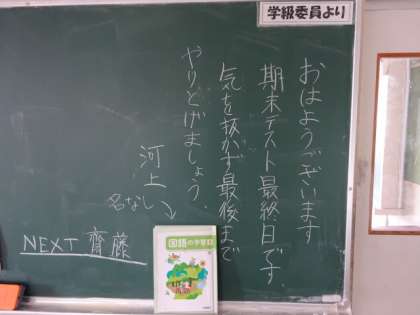 学級委員より
おはようございます
期末テスト最終日です。
気を抜かず最後まで
やりとげましょう。
河上
名ない
NEXT 齊藤
国語の学習